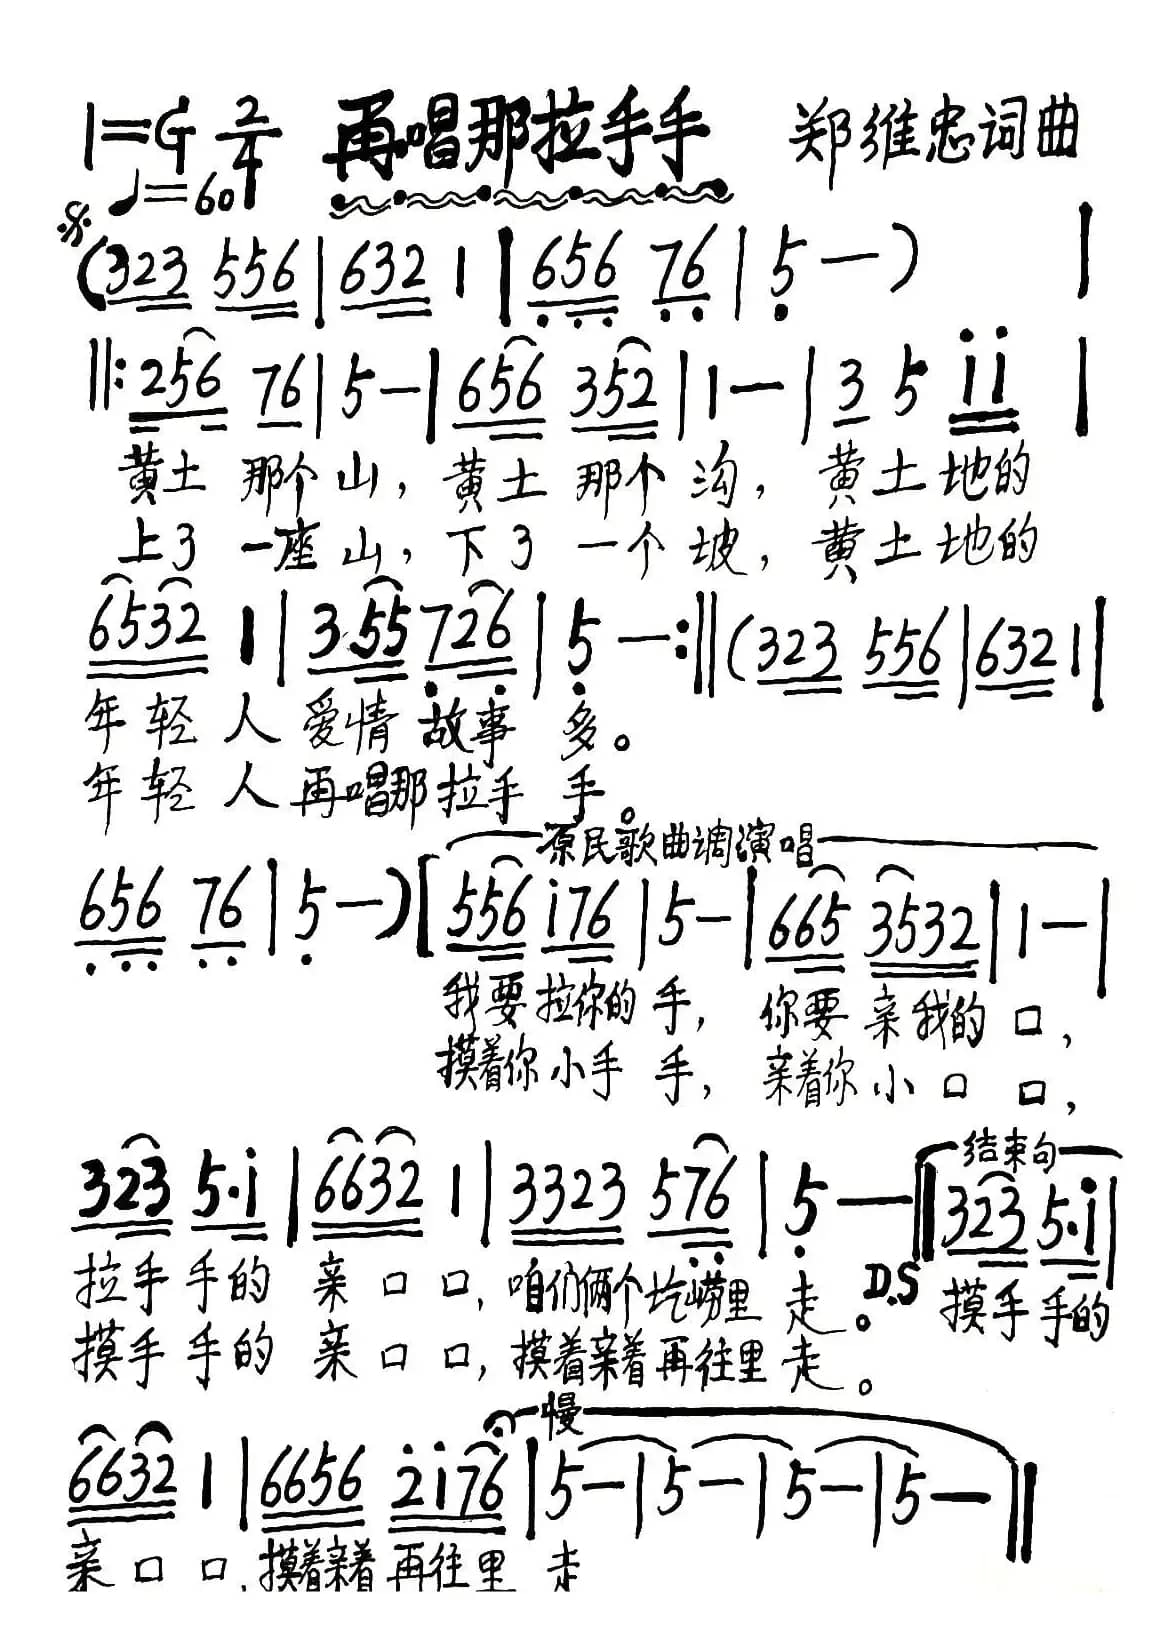 1=G 2/4 再唱那拉手手 郑维忠词曲
♩=60
(323 556 | 632 1 | 656 76 | 5 — ) |
‖: 256 76 | 5 — | 656 352 | 1 — | 3 5 ii |
黄土 那个山，黄土 那个 沟，黄土地的
上了 一座山，下了 一个坡，黄土地的
6532 1 | 3·55 726 | 5 — :‖ (323 556 | 632 1 |
年轻人 爱情 故事 多。
年轻人 再唱那拉手 手。
原民歌曲调演唱
656 76 | 5 — ) [ 556 i76 | 5 — | 665 3532 | 1 — |
我要拉你的手，你要亲我的口，
摸着你小手手，亲着你小口口，
结束句
323 5·i | 6632 1 | 3323 576 | 5 — ‖ 323 5·i |
拉手手的 亲口口，咱们俩个圪崂里走。D.S 摸手手的
摸手手的 亲口口，摸着亲着再往里走。
慢
6632 1 | 6656 2i76 | 5 — | 5 — | 5 — | 5 — ‖
亲口口，摸着亲着再往里 走